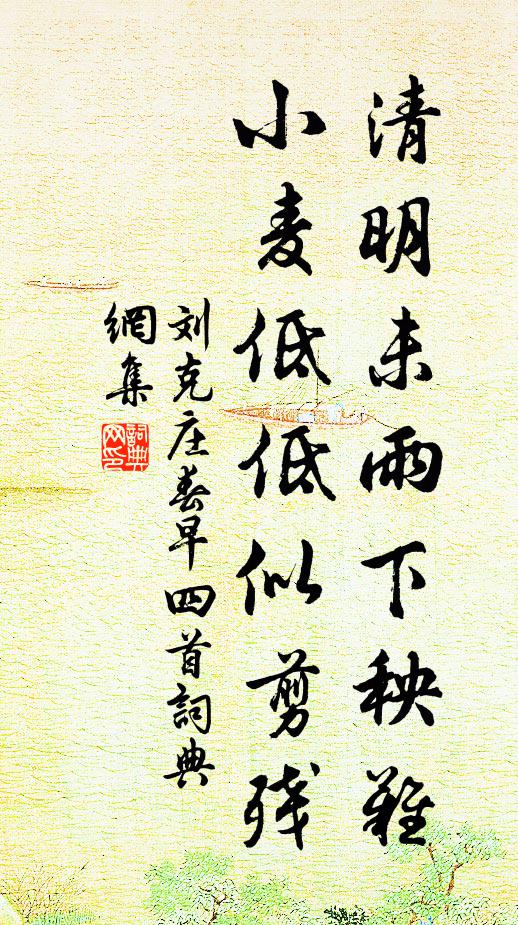 清明未雨下秧難
小麦低低似剪残
刘克庄春早四首詞典
網集
詞典
网印